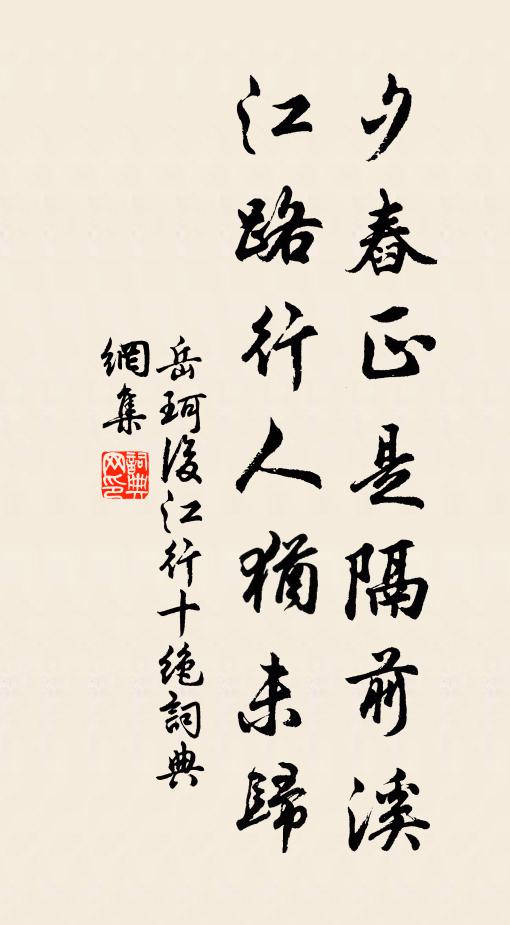 夕舂正是隔前溪
江路行人猶未歸
岳珂後江行十絶詞典
網集
詞典
网印